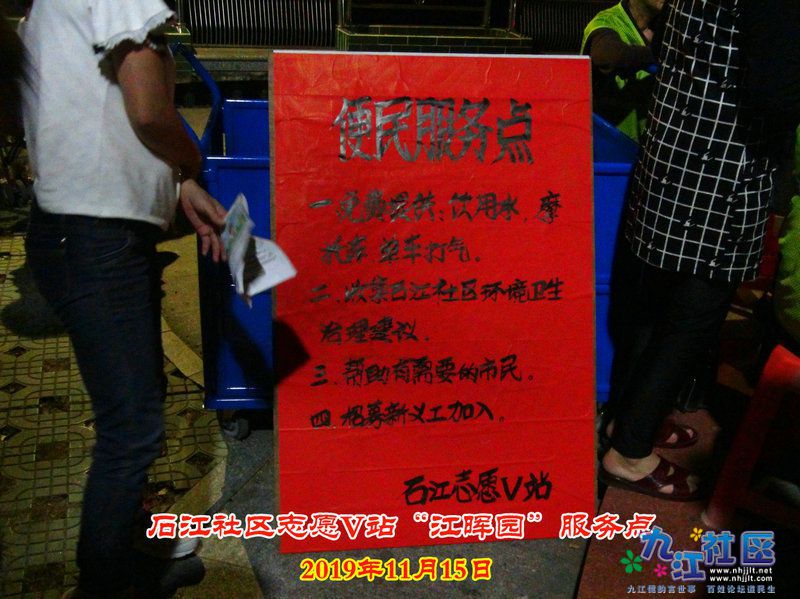 便民服务点
一.免费提供:饮用水.摩
托车.单车打气。
二.收集石江社区环境卫生
治理建议.
三.帮助有需要的市民。
四.招募新义工加入。
石江志愿V站
石江社区志愿V站“江晖园”服务点
2019年11月15日
九江社区
www.nhjjlt.net
www.nhjjlt.com
九江儒韵言世事 百姓论坛道民生